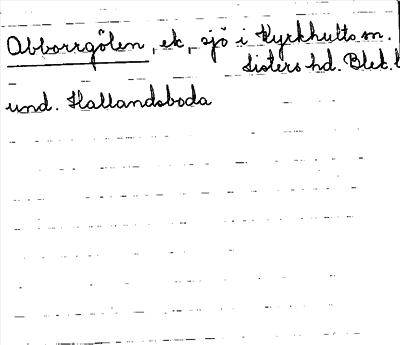 Abborrgölen, ek, sjö i Kyrkhults sn.
Listers hd. Blek. l
und. Hallandsboda